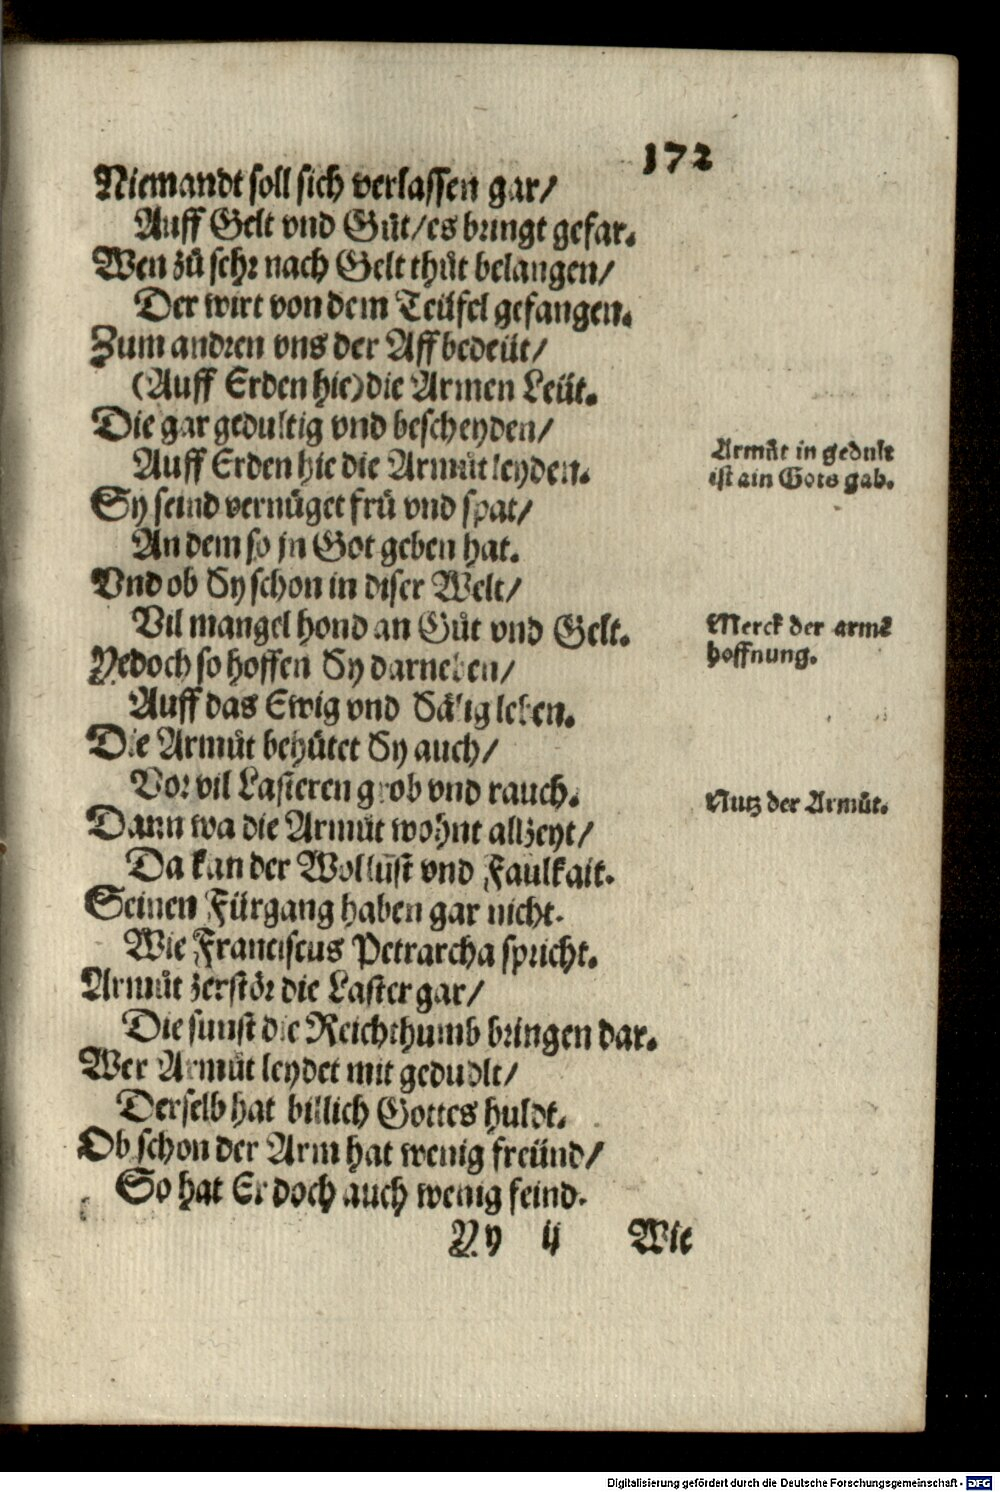 172
Niemandt soll sich verlassen gar/
Auff Gelt vnd Gůt/es bringt gefar.
Wen zů sehr nach Gelt thůt belangen/
Der wirt von dem Teüfel gefangen.
Zum andren vns der Aff bedeüt/
(Auff Erden hie) die Armen Leüt.
Die gar gedultig vnd bescheyden/
Auff Erden hie die Armůt leyden.
Armůt in gedult
ist ain Gots gab.
Sy seind vernüget frü vnd spat/
An dem so jn Got geben hat.
Vnd ob Sy schon in diser Welt/
Vil mangel hond an Gůt vnd Gelt.
Merck der armē
hoffnung.
Yedoch so hoffen Sy darneben/
Auff das Ewig vnd Sälig leben.
Die Armůt behütet Sy auch/
Vor vil Lasteren grob vnd rauch.
Nutz der Armůt.
Dann wa die Armůt wohnt allzeyt/
Da kan der Wollust vnd Faulkait.
Seinen Fürgang haben gar nicht.
Wie Franciscus Petrarcha spricht.
Armůt zerstör die Laster gar/
Die sunst die Reichthumb bringen dar.
Wer Armůt leydet mit gedudlt/
Derselb hat billich Gottes huldt.
Ob schon der Arm hat wenig freünd/
So hat Er doch auch wenig feind.
Yy ij Wie
Digitalisierung gefördert durch die Deutsche Forschungsgemeinschaft - DFG